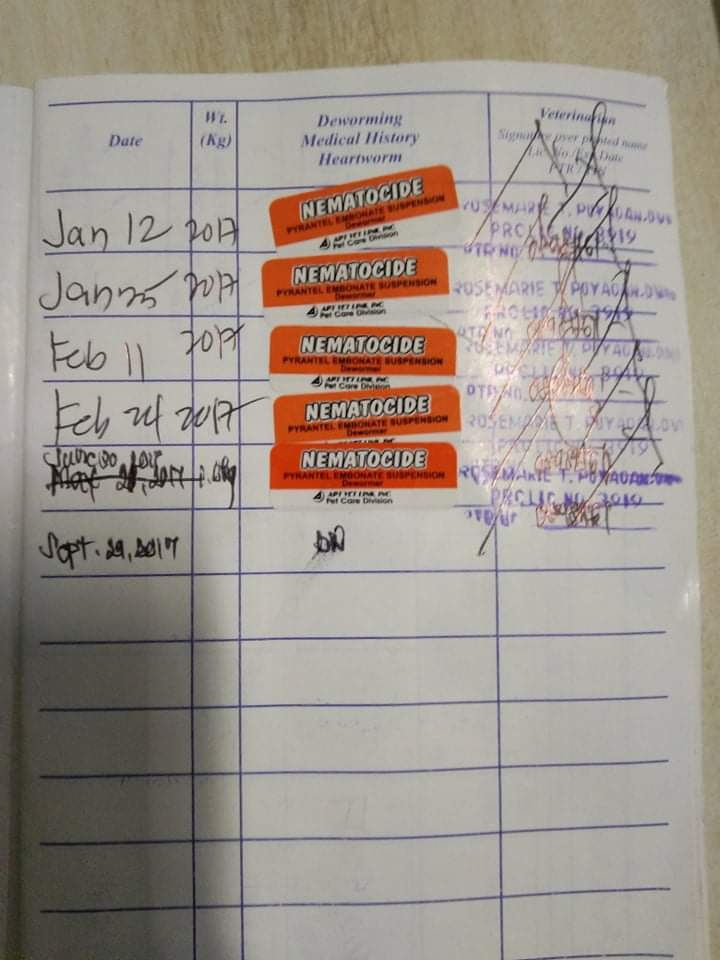 Date
Wt.
(Kg)
Deworming
Medical History
Heartworm
Veterinarian
Signature over printed name
Lic. No./Exp. Date
Jan 12 2017
NEMATOCIDE
PYRANTEL EMBONATE SUSPENSION
Dewormer
APT VET LINK, INC
Pet Care Division
ROSEMARIE T. PUYAOAN, DVM
PRC LIC. NO. 3919
PTR NO.
Jan 25 2017
NEMATOCIDE
PYRANTEL EMBONATE SUSPENSION
Dewormer
APT VET LINK, INC
Pet Care Division
ROSEMARIE T. PUYAOAN, DVM
PRC LIC. NO. 3919
PTR NO.
Feb 11 2017
NEMATOCIDE
PYRANTEL EMBONATE SUSPENSION
Dewormer
APT VET LINK, INC
Pet Care Division
ROSEMARIE T. PUYAOAN, DVM
PRC LIC. NO. 3919
PTR NO.
Feb 24 2017
NEMATOCIDE
PYRANTEL EMBONATE SUSPENSION
Dewormer
ROSEMARIE T. PUYAOAN, DVM
PRC LIC. NO. 3919
NEMATOCIDE
PYRANTEL EMBONATE SUSPENSION
Dewormer
APT VET LINK, INC
Pet Care Division
ROSEMARIE T. PUYAOAN, DVM
PRC LIC. NO. 3919
Sept. 29, 2017